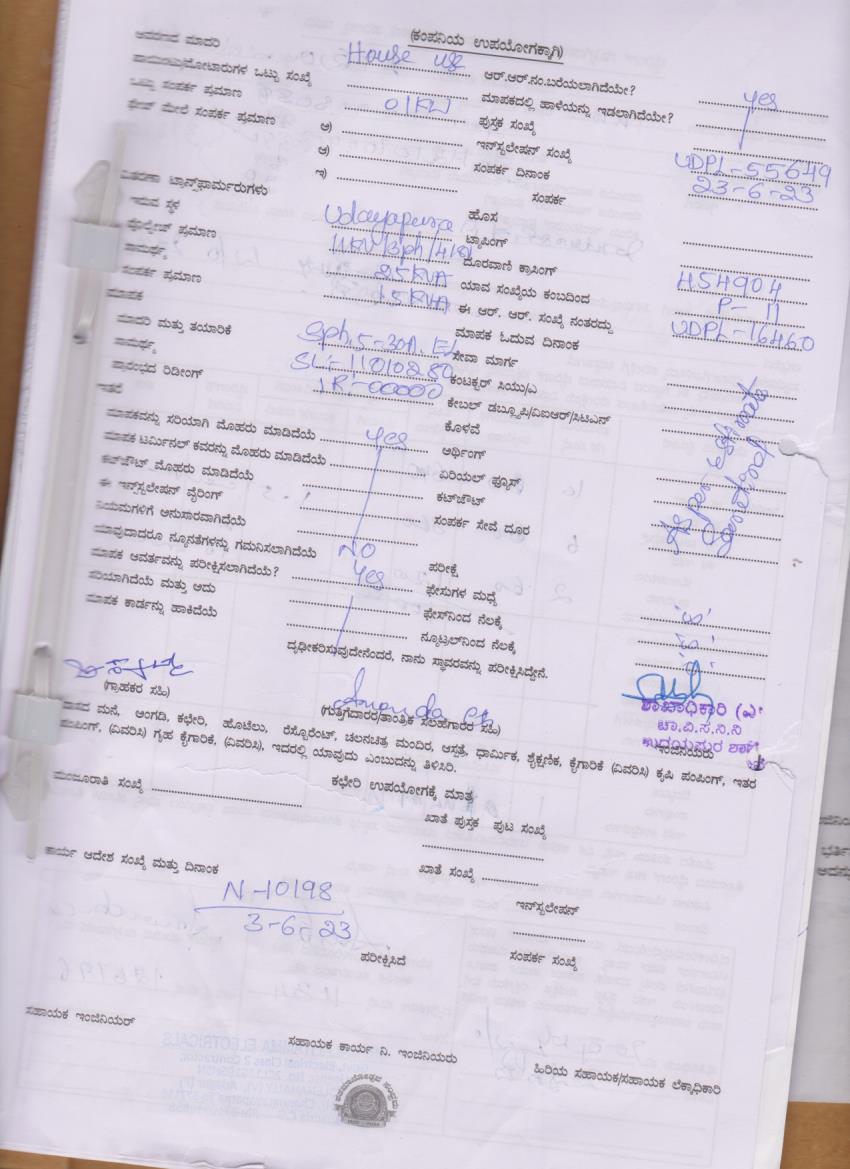 (ಕಂಪನಿಯ ಉಪಯೋಗಕ್ಕಾಗಿ)
ಆವರಣದ ಮಾದರಿ House use ಆರ್.ಆರ್.ನಂ.ಬರೆಯಲಾಗಿದೆಯೇ? yes
ಪಾಯಿಂಟು/ಮೋಟಾರುಗಳ ಒಟ್ಟು ಸಂಖ್ಯೆ ಮಾಪಕದಲ್ಲಿ ಹಾಳೆಯನ್ನು ಇಡಲಾಗಿದೆಯೇ?
ಒಟ್ಟು ಸಂಪರ್ಕ ಪ್ರಮಾಣ 01KW ಪುಸ್ತಕ ಸಂಖ್ಯೆ
ಫೇಸ್ ಮೇಲೆ ಸಂಪರ್ಕ ಪ್ರಮಾಣ ಅ) ಇನ್‌ಸ್ಟಲೇಷನ್ ಸಂಖ್ಯೆ UDPL-55649
ಆ) ಸಂಪರ್ಕ ದಿನಾಂಕ 23-6-23
ಇ) ಸಂಪರ್ಕ
ವಿತರಣಾ ಟ್ರಾನ್ಸ್‌ಫಾರ್ಮರುಗಳು ಹೊಸ
ಇರುವ ಸ್ಥಳ Udayapura ಟ್ಯಾಪಿಂಗ್
ವೋಲ್ಟೇಜ್ ಪ್ರಮಾಣ 11KV/3ph/ ದೂರವಾಣಿ ಕ್ರಾಸಿಂಗ್
ಸಾಮರ್ಥ್ಯ 25KVA ಯಾವ ಸಂಖ್ಯೆಯ ಕಂಬದಿಂದ H54904
ಸಂಪರ್ಕ ಪ್ರಮಾಣ 15KVA ಈ ಆರ್. ಆರ್. ಸಂಖ್ಯೆ ನಂತರದ್ದು P-11
ಮಾಪಕ ಮಾಪಕ ಓದುವ ದಿನಾಂಕ UDPL-16460
ಮಾದರಿ ಮತ್ತು ತಯಾರಿಕೆ Sph,5-30A, ಸೇವಾ ಮಾರ್ಗ
ಸಾಮರ್ಥ್ಯ ಕಂಟಕ್ಟರ್ ಸಿಯು/ಎ
ಪ್ರಾರಂಭದ ರಿಡೀಂಗ್ IR-00000 ಕೇಬಲ್ ಡಬ್ಲ್ಯೂಪಿ/ವಿಐಆರ್/ಸಿಟಿಎನ್
ಇತರೆ ಕೊಳವೆ
ಮಾಪಕವನ್ನು ಸರಿಯಾಗಿ ಮೊಹರು ಮಾಡಿದೆಯೆ yes ಆರ್ಥಿಂಗ್
ಮಾಪಕ ಟರ್ಮಿನಲ್ ಕವರನ್ನು ಮೊಹರು ಮಾಡಿದೆಯೆ ಏರಿಯಲ್ ಫ್ಯೂಸ್
ಕಟ್‌ಜೌಟ್ ಮೊಹರು ಮಾಡಿದೆಯೆ ಕಟ್‌ಜೌಟ್
ಈ ಇನ್ಸ್‌ಸ್ಟಲೇಷನ್ ವೈರಿಂಗ್ ಸಂಪರ್ಕ ಸೇವೆ ದೂರ
ನಿಯಮಗಳಿಗೆ ಅನುಸಾರವಾಗಿದೆಯೆ
ಯಾವುದಾದರೂ ನ್ಯೂನತೆಗಳನ್ನು ಗಮನಿಸಲಾಗಿದೆಯೆ NO ಪರೀಕ್ಷೆ
ಮಾಪಕ ಆವರ್ತವನ್ನು ಪರೀಕ್ಷಿಸಲಾಗಿದೆಯೆ? Yes ಫೇಸುಗಳ ಮಧ್ಯೆ
ಸರಿಯಾಗಿದೆಯೆ ಮತ್ತು ಅದು ಫೇಸ್‌ನಿಂದ ನೆಲಕ್ಕೆ
ಮಾಪಕ ಕಾರ್ಡನ್ನು ಹಾಕಿದೆಯೆ ನ್ಯೂಟ್ರಲ್‌ನಿಂದ ನೆಲಕ್ಕೆ
ದೃಢೀಕರಿಸುವುದೇನೆಂದರೆ, ನಾನು ಸ್ಥಾವರವನ್ನು ಪರೀಕ್ಷಿಸಿದ್ದೇನೆ.
(ಗ್ರಾಹಕರ ಸಹಿ) (ಗುತ್ತಿಗೆದಾರರ/ತಾಂತ್ರಿಕ ಸಲಹಗಾರರ ಸಹಿ) ಶಾಖಾಧಿಕಾರಿ
ಚಾ.ವಿ.ಸ.ನಿ.ನಿ
ಉದಯಪುರ
ಇಂಜಿನಿಯರು
ವಾಸದ ಮನೆ, ಅಂಗಡಿ, ಕಛೇರಿ, ಹೊಟೆಲು, ರೆಸ್ಟೊರೆಂಟ್, ಚಲನಚಿತ್ರ ಮಂದಿರ, ಆಸ್ಪತ್ರೆ, ಧಾರ್ಮಿಕ, ಶೈಕ್ಷಣಿಕ, ಕೈಗಾರಿಕೆ (ವಿವರಿಸಿ) ಕೃಷಿ ಪಂಪಿಂಗ್, ಇತರ
ಪಂಪಿಂಗ್, (ವಿವರಿಸಿ) ಗೃಹ ಕೈಗಾರಿಕೆ, (ವಿವರಿಸಿ), ಇದರಲ್ಲಿ ಯಾವುದು ಎಂಬುದನ್ನು ತಿಳಿಸಿರಿ.
ಕಛೇರಿ ಉಪಯೋಗಕ್ಕೆ ಮಾತ್ರ
ಮಂಜೂರಾತಿ ಸಂಖ್ಯೆ
ಖಾತೆ ಪುಸ್ತಕ ಪುಟ ಸಂಖ್ಯೆ
ಕಾರ್ಯ ಆದೇಶ ಸಂಖ್ಯೆ ಮತ್ತು ದಿನಾಂಕ ಖಾತೆ ಸಂಖ್ಯೆ
N-10198 ಇನ್‌ಸ್ಟಲೇಷನ್
3-6-23
ಪರೀಕ್ಷಿಸಿದೆ ಸಂಪರ್ಕ ಸಂಖ್ಯೆ
ಸಹಾಯಕ ಇಂಜಿನಿಯರ್
ಸಹಾಯಕ ಕಾರ್ಯ ನಿ. ಇಂಜಿನಿಯರು
ಹಿರಿಯ ಸಹಾಯಕ/ಸಹಾಯಕ ಲೆಕ್ಕಾಧಿಕಾರಿ